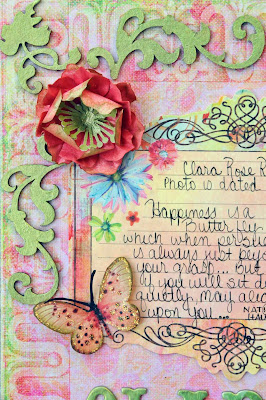 Clara Rose R
Photo is dated
Happiness is a
Butterfly
which when persu
is always just bey
your grasp... but
if you will sit do
quietly, may alig
upon you...
NATH
HAW